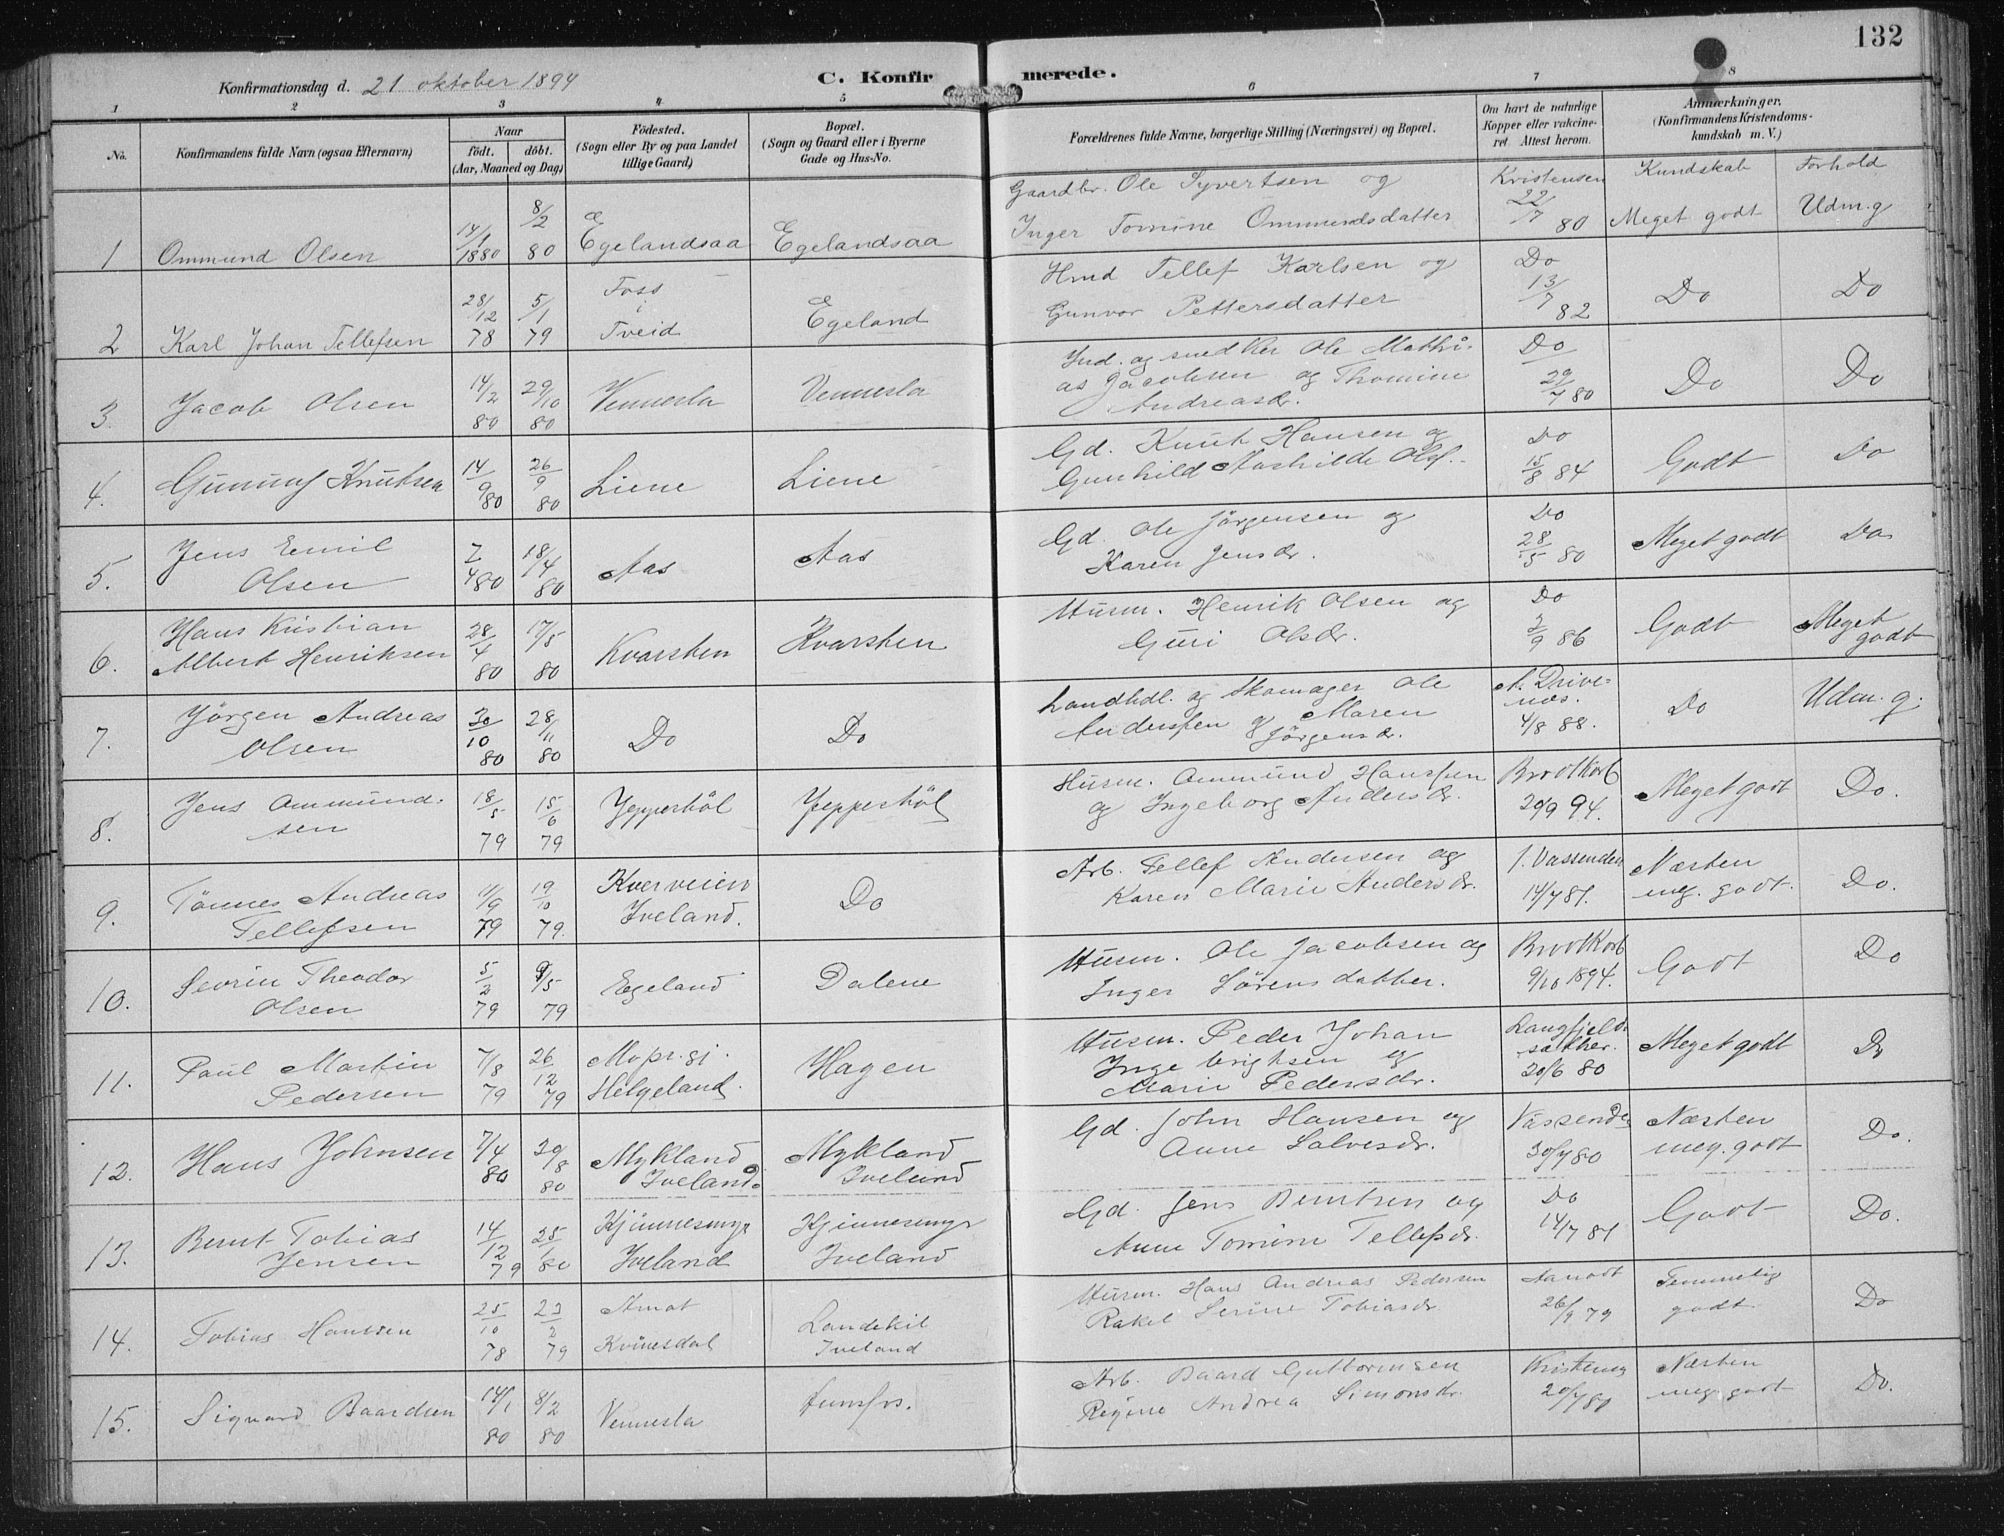 132
Konfirmationsdag d. 21 oktober 1894
C. Konfirmerede.
1 2 3 4 5 6 7 8
No.
Konfirmandens fulde Navn (ogsaa Efternavn)
Naar
født. døbt.
(Aar, Maaned og Dag)
Fødested.
(Sogn eller By og paa Landet
tillige Gaard)
Bopæl.
(Sogn og Gaard eller i Byerne
Gade og Hus-No.
Forældrenes fulde Navne, borgerlige Stilling (Næringsvei) og Bopæl.
Om havt de naturlige
Kopper eller vakcine-
ret. Attest herom.
Anmærkninger.
(Konfirmandens Kristendoms-
kundskab m. V.)
Kundskab Forhold
1 Ommund Olsen 14/1 1880 8/2 80 Egelandsaa Egelandsaa
Gaardbr. Ole Syvertsen og
Inger Tomine Ommundsdatter
Kristensen 22/7 80 Meget godt Udm. g
2 Karl Johan Tellefsen 28/12 78 5/1 79 Foss i Tveid Egeland
Hmd Tellef Karlsen og
Gunvor Pettersdatter
Do 13/7 82 Do Do
3. Jacob Olsen 14/2 80 29/10 80 Vennesla Vennesla
Ind. og snedker Ole Mathi-
as Jacobsen og Thomine
Andreasdr.
Do 29/7 80 Do Do
4. Knutsen 14/9 80 26/9 80 Liene Liene
Gd. Knut Hansen og
Gunhild Aashilde Olsd.
Do 15/8 84 Godt Do
5. Jens Emil
Olsen 7/4 80 18/4 80 Aas Aas
Gd. Ole Jørgensen og
Karen Jensdr.
Do 28/5 80 Meget godt Do
6. Hans Kristian
Albert Henriksen 28/4 80 17/5 80 Kvarsten Kvarsten
Husm. Henrik Olsen og
Guri Olsdr.
Do 2/9 86 Godt Meget
godt
7. Jørgen Andreas
Olsen 30/10 80 28/11 80 Do Do
Landhdl. og Skomager Ole
Anderssen og Maren
Jørgensdr.
A. Drive-
næs. 4/8 88. Do Udm. g.
8. Jens Ommund-
sen 18/5 79 15/6 79 Jeppestøl Jeppestøl
Husm. Ommund Hanssen
og Ingeborg Andersdr.
Brodtkorb 20/9 94. Meget godt Do.
9. Tønnes Andreas
Tellefsen 11/9 79 19/10 79. Kverveien
Iveland. Do
Arb. Tellef Andersen og
Karen Marie Andersdr.
J. Vassenden 14/7 81. Næsten
meg. godt. Do.
10. Sevrin Theodor
Olsen 5/2 79 9/5 79 Egeland Dalene
Husm. Ole Jacobsen og
Inger Sørensdatter.
Brodtkorb 9/10 1894. Godt Do
11. Paul Martin
Pedersen 7/8 79 26/12 79
Helgeland. Hagen
Husm. Peder Johan
Ingebrigtsen og
Marie Pedersdr.
Langfjeld-
sæther. 20/6 80 Meget godt Do
12. Hans Johnsen 7/4 80 29/8 80 Mykland
Iveland. Mykland
Iveland
Gd. John Hansen og
Anne Salvesdr.
Vassenden 30/7 80 Næsten
meg. godt Do.
13. Bernt Tobias
Jensen 14/12 79 25/1 80 Kjønnesmyr
Iveland Kjønnesmyr
Iveland
Gd. Jens Berntsen og
Anne Tomine Tellefsdr.
Do 14/7 81 Godt Do.
14. Tobias Hanssen 25/10 78 23/2 79 Amot
Kvinesdal Landekil
Iveland
Husm. Hans Andreas Pedersen
Rakel Serine Tobiasdr
26/9 79 Temmelig
godt Do
15. Sigvard Baardsen 14/1 80 8/2 80 Vennesla Hunsfos.
Arb. Baard Guttormsen
Regine Andrea Simonsdr.
20/7 81 Næsten
meg. godt Do.